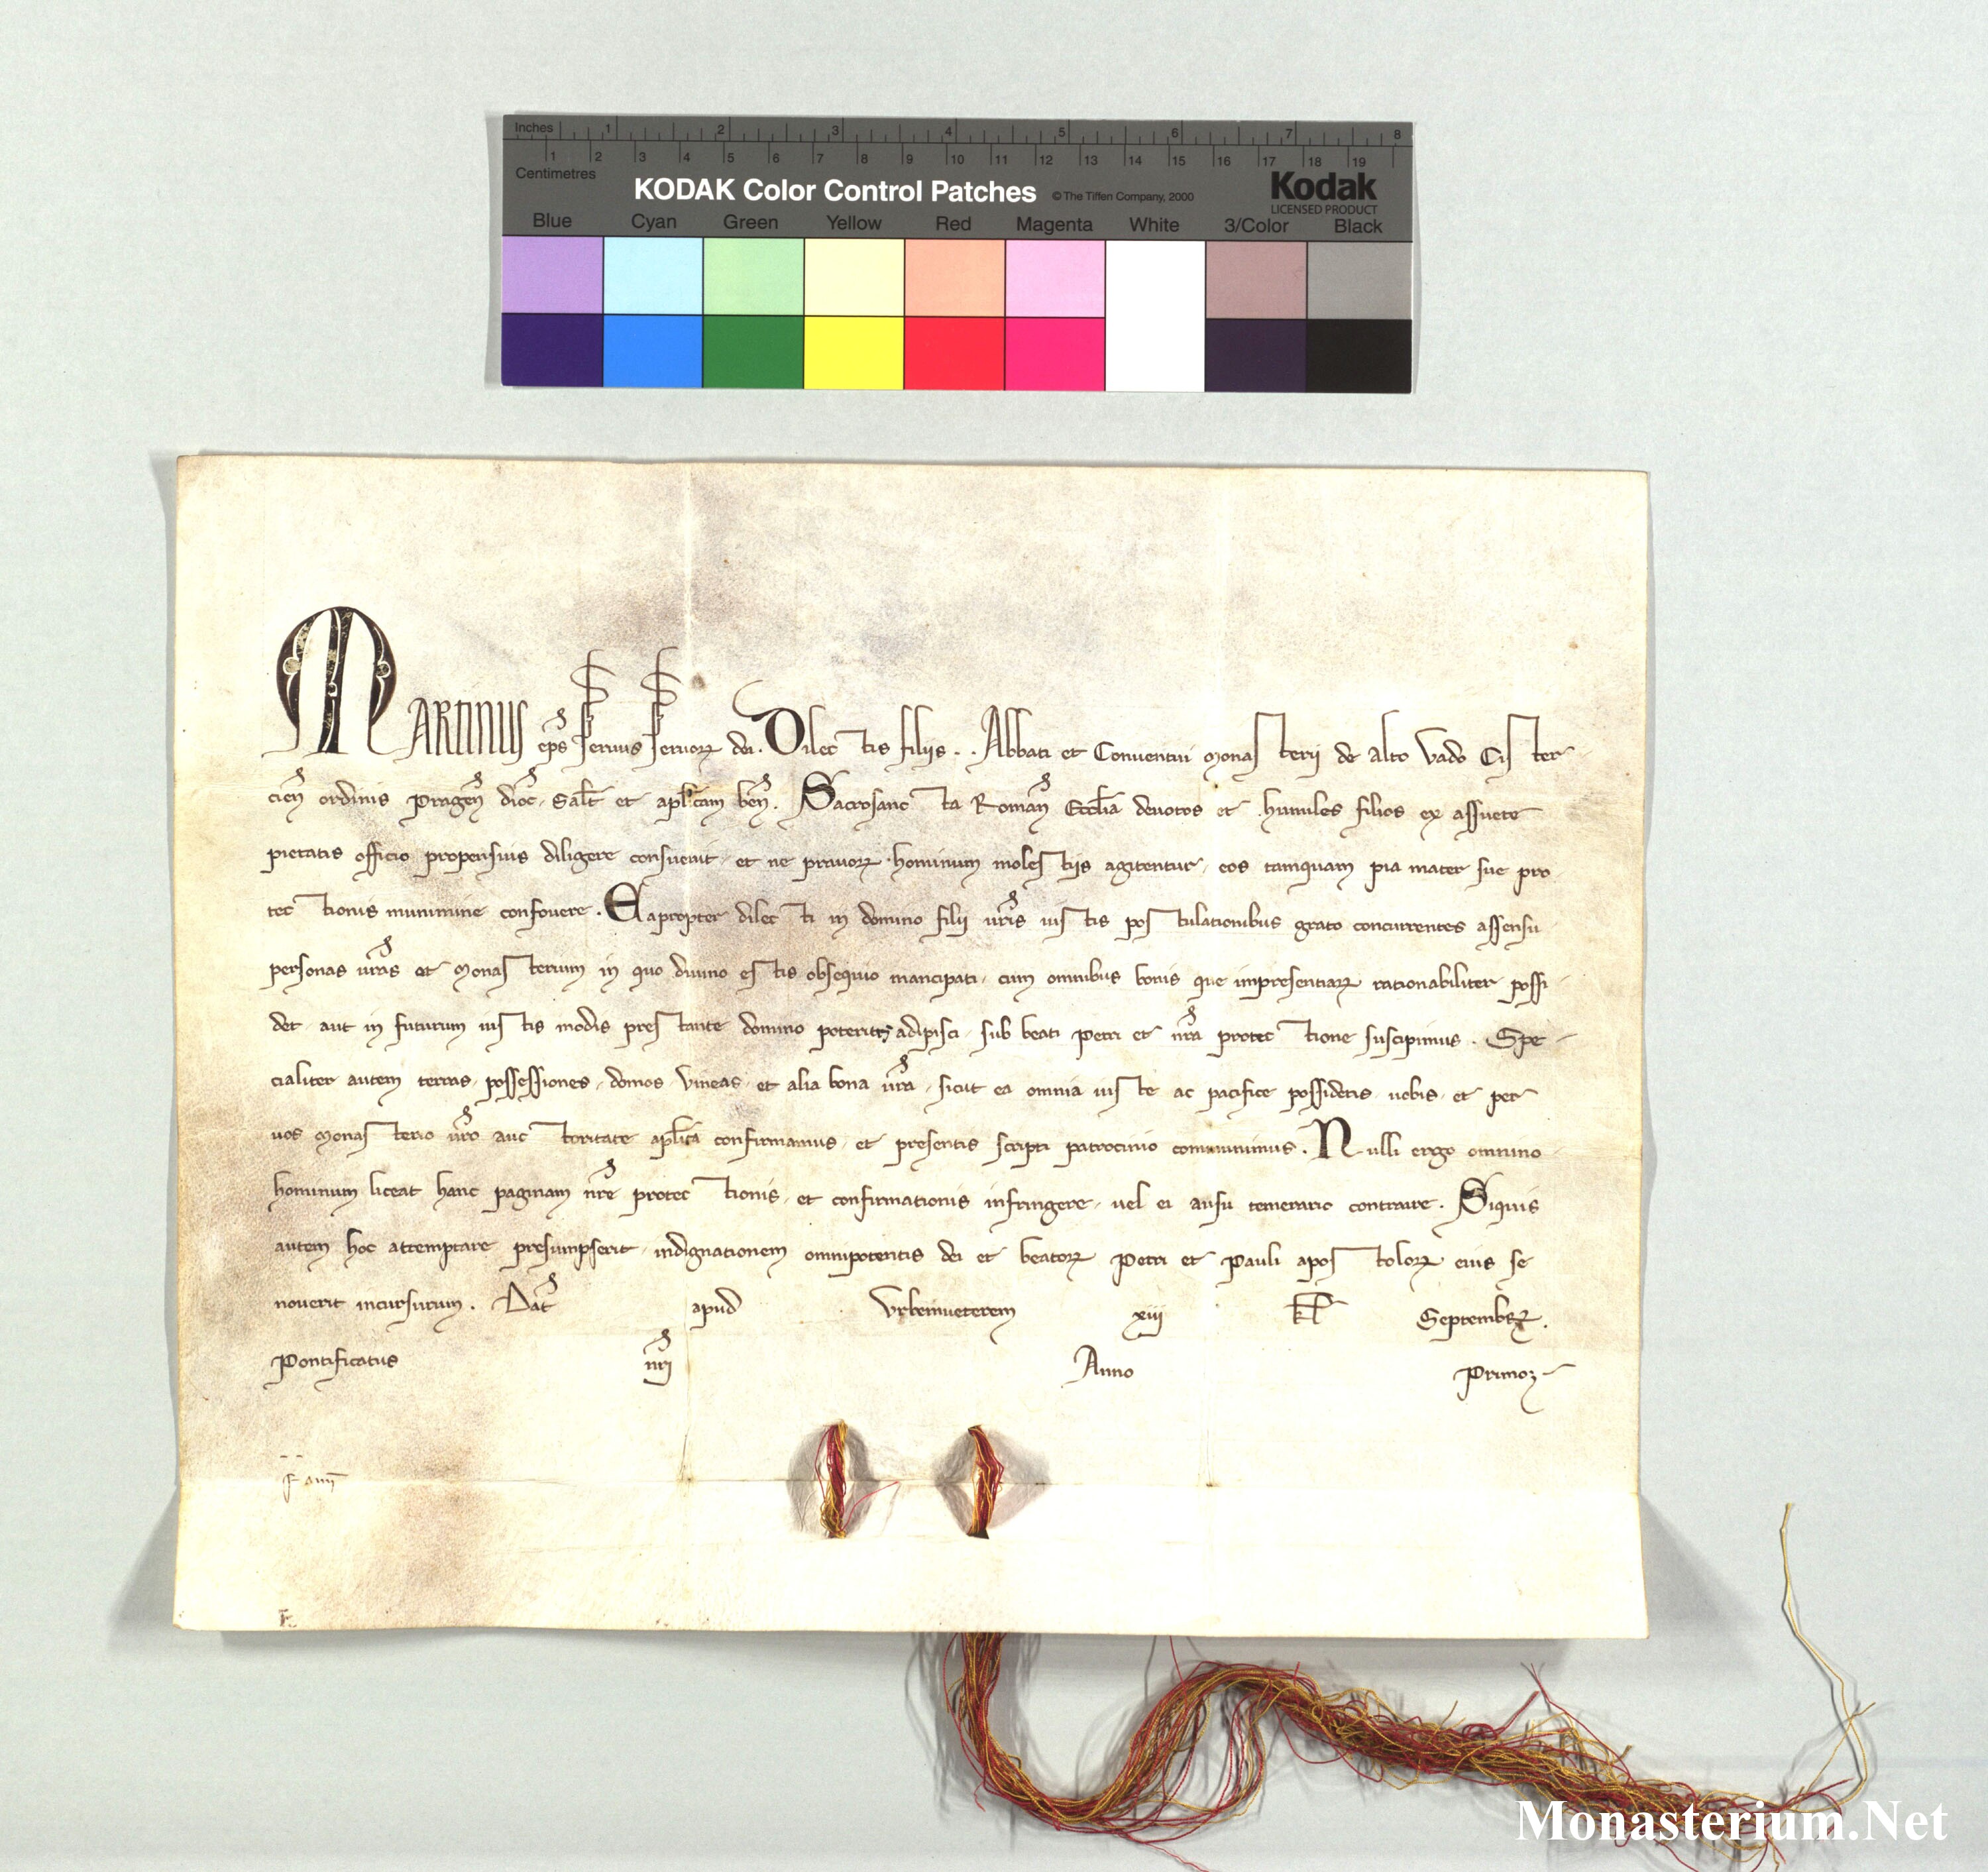 Inches 1 2 3 4 5 6 7 8
1 2 3 4 5 6 7 8 9 10 11 12 13 14 15 16 17 18 19
Centimetres
KODAK Color Control Patches © The Tiffen Company, 2000 Kodak
LICENSED PRODUCT
Blue Cyan Green Yellow Red Magenta White 3/Color Black
MARTINUS ep̄s seruus seruoꝝ dei. Dilectis filiis . . Abbati et Conuentui Monasterii de Alto Vado Cister
cień ordinis Prageń dioc̄. Salt̄ et aplīcam beń. Sacrosancta Romań Ecclīa deuotos et humiles filios ex assuete
pietatis officio propensius diligere consueuit, et ne prauoꝝ hominum molestiis agitentur, eos tamquam pia mater sue pro
tectionis munimine confouere. Eapropter dilecti in domino filii ur̄is iustis postulationibus grato concurrentes assensu
personas ur̄as et Monasterium in quo diuino estis obsequio mancipati, cum omnibus bonis que impresentiaꝝ rationabiliter possi
det, aut in futurum iustis modis prestante domino poterit adipisci, sub beati Petri et nr̄a protectione suscipimus. Spe
cialiter autem terras, possessiones, domos, Vineas, et alia bona ur̄a, sicut ea omnia iuste ac pacifice possidetis, uobis, et per
uos Monasterio ur̄o auctoritate aplīca confirmamus, et presentis scripti patrocinio communimus. Nulli ergo omnino
hominum liceat hanc paginam nr̄e protectionis, et confirmationis infringere, uel ei ausu temerario contraire. Siquis
autem hoc attemptare presumpserit, indignationem omnipotentis dei et beatoꝝ Petri et Pauli apostoloꝝ eius se
nouerit incursurum. Dat̄ apud Vrbemueterem xiij kl̄ Septembꝝ.
Pontificatus nr̄i Anno Primo
Monasterium.Net